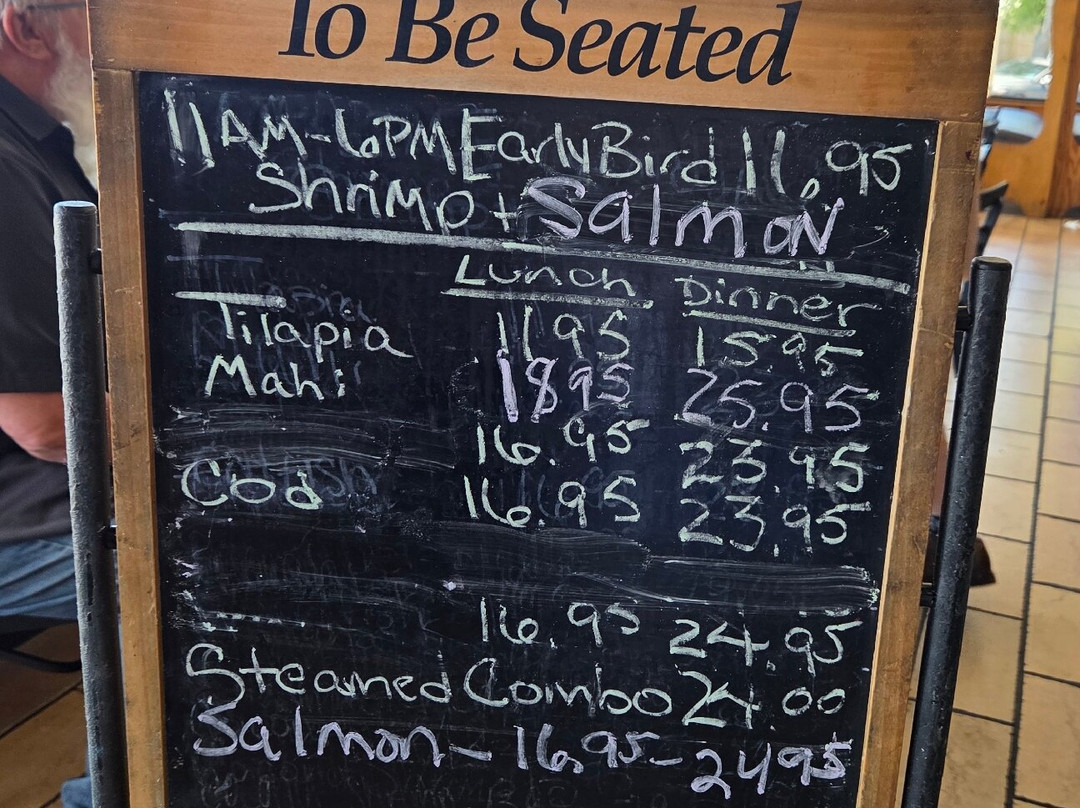 To Be Seated
11AM-6PM Early Bird 11.95
Shrimp + Salmon
Lunch Dinner
Tilapia 1195 15.95
Mahi 1895 25.95
16.95 23.95
Cod 16.95 23.95
16.95 24.95
Steamed Combo 24.00
Salmon - 16.95 - 2495